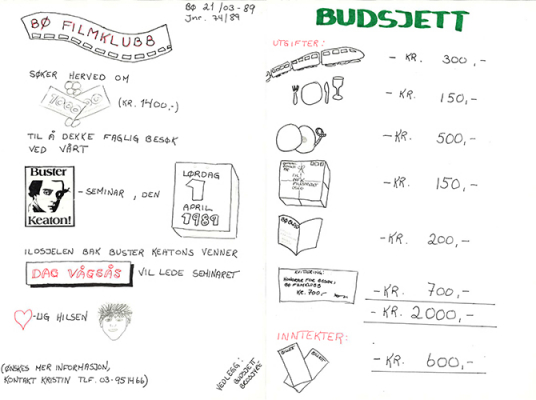 BØ FILMKLUBB
BØ 21/03-89
Jnr. 74/89
SØKER HERVED OM
(KR. 1400,-)
TIL Å DEKKE FAGLIG BESØK
VED VÅRT
Buster
Keaton!
-SEMINAR, DEN
LØRDAG
1
APRIL
1989
ILDSJELEN BAK BUSTER KEATONS VENNER
DAG VÅGSÅS VIL LEDE SEMINARET
-LIG HILSEN
(ØNSKES MER INFORMASJON,
KONTAKT KRISTIN TLF. 03-951466)
VEDLEGG:
BUDSJETT
BUDSJETT
UTGIFTER:
- KR. 300,-
- KR. 150,-
- KR. 500,-
- KR. 150,-
- KR. 200,-
BØ FILMKLUBB
KR. 700,-
- KR. 700,-
- KR. 2000,-
INNTEKTER:
BILLETT
- KR. 600,-